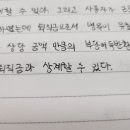 할 수 있다. 그리고 사용자가 근
하였는데 퇴직금으로서 명목이 유
상당 금액 만큼의 부당이득반환
퇴직금과 상계할 수 있다.